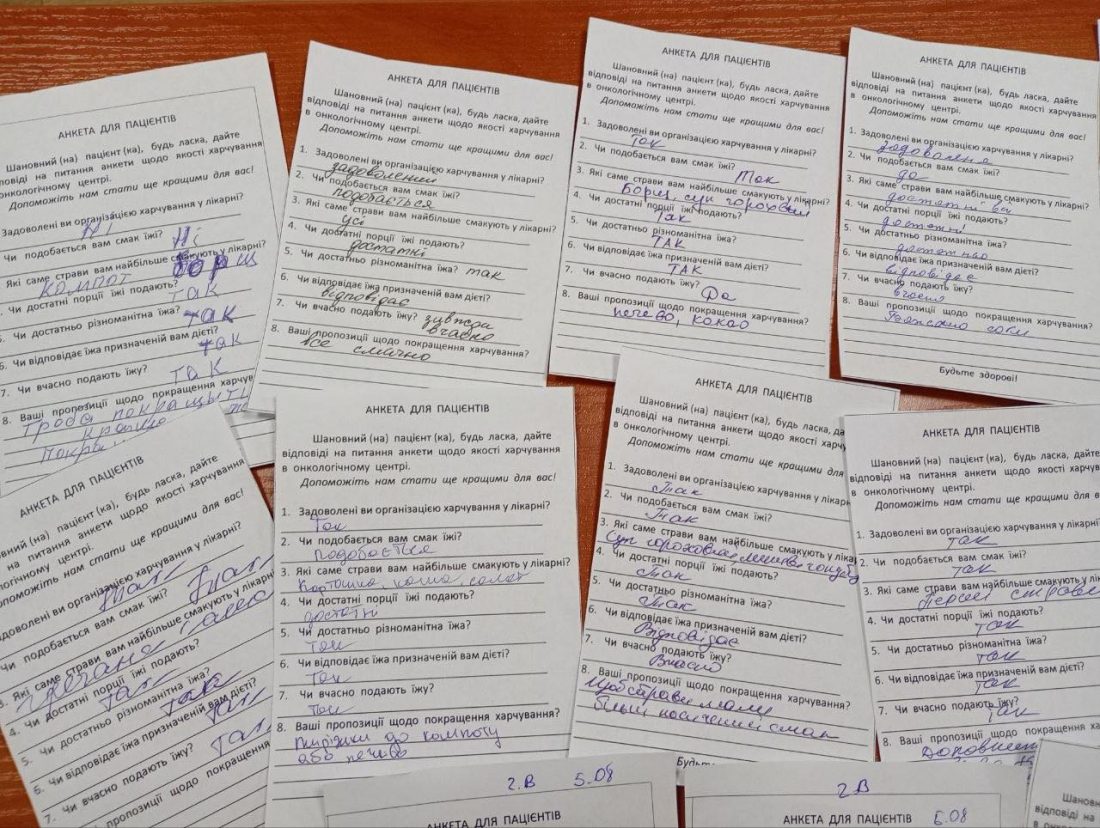 АНКЕТА ДЛЯ ПАЦІЄНТІВ
Шановний (на) пацієнт (ка), будь ласка, дайте
відповіді на питання анкети щодо якості харчування
онкологічному центрі.
Допоможіть нам стати ще кращими для вас!
Задоволені ви організацією харчування у лікарні?
Ні
Чи подобається вам смак їжі? Ні
Які саме страви вам найбільше смакують у лікарні?
компот борщ
Чи достатні порції їжі подають?
так
Чи достатньо різноманітна їжа? так
6. Чи відповідає їжа призначеній вам дієті?
так
7. Чи вчасно подають їжу? так
8. Ваші пропозиції щодо покращення харчув
АНКЕТА ДЛЯ ПАЦІЄНТІВ
Шановний (на) пацієнт (ка), будь ласка, дайте
відповіді на питання анкети щодо якості харчування
в онкологічному центрі.
Допоможіть нам стати ще кращими для вас!
1. Задоволені ви організацією харчування у лікарні?
задоволений
2. Чи подобається вам смак їжі?
подобається
3. Які саме страви вам найбільше смакують у лікарні?
усі
4. Чи достатні порції їжі подають?
достатні
5. Чи достатньо різноманітна їжа? так
6. Чи відповідає їжа призначеній вам дієті?
відповідає
7. Чи вчасно подають їжу? завжди
вчасно
8. Ваші пропозиції щодо покращення харчування?
все смачно
АНКЕТА ДЛЯ ПАЦІЄНТІВ
Шановний (на) пацієнт (ка), будь ласка, дайте
відповіді на питання анкети щодо якості харчування
в онкологічному центрі.
Допоможіть нам стати ще кращими для вас!
1. Задоволені ви організацією харчування у лікарні?
Так
2. Чи подобається вам смак їжі? Так
3. Які саме страви вам найбільше смакують у лікарні?
Борщ, суп гороховий
4. Чи достатні порції їжі подають?
Так
5. Чи достатньо різноманітна їжа?
ТАК
6. Чи відповідає їжа призначеній вам дієті?
ТАК
7. Чи вчасно подають їжу? Да
8. Ваші пропозиції щодо покращення харчування?
печево, какао
АНКЕТА ДЛЯ ПАЦІЄНТІВ
Шановний (на) пацієнт (ка), будь ласка, дайте
відповіді на питання анкети щодо якості харчування
в онкологічному центрі.
Допоможіть нам стати ще кращими для вас!
1. Задоволені ви організацією харчування у лікарні?
задоволена
2. Чи подобається вам смак їжі?
да
3. Які саме страви вам найбільше смакують у лікарні?
достатні
4. Чи достатні порції їжі подають?
достатні
5. Чи достатньо різноманітна їжа?
достатньо
6. Чи відповідає їжа призначеній вам дієті?
відповідає
7. Чи вчасно подають їжу?
вчасно
8. Ваші пропозиції щодо покращення харчування?
соки
Будьте здорові!
АНКЕТА ДЛЯ ПАЦІЄНТІВ
пацієнт (ка), будь ласка, дайте
на питання анкети щодо якості харчування
центрі.
нам стати ще кращими для вас!
організацією харчування у лікарні?
Так
Чи подобається вам смак їжі? Так
3. Які саме страви вам найбільше смакують у лікарні
4. Чи достатні порції їжі подають?
так
5. Чи достатньо різноманітна їжа? так
6. Чи відповідає їжа призначеній вам дієті?
так
7. Чи вчасно подають їжу? так
пропозиції щодо покращення
АНКЕТА ДЛЯ ПАЦІЄНТІВ
Шановний (на) пацієнт (ка), будь ласка, дайте
відповіді на питання анкети щодо якості харчування
в онкологічному центрі.
Допоможіть нам стати ще кращими для вас!
1. Задоволені ви організацією харчування у лікарні?
Так
2. Чи подобається вам смак їжі?
подобається
3. Які саме страви вам найбільше смакують у лікарні?
Картошка, каша, салат
4. Чи достатні порції їжі подають?
достатні
5. Чи достатньо різноманітна їжа?
Так
6. Чи відповідає їжа призначеній вам дієті?
Так
7. Чи вчасно подають їжу?
Так
8. Ваші пропозиції щодо покращення харчування?
пиріжки до компоту
або печево
АНКЕТА ДЛЯ ПАЦІЄНТІВ
Шановний (на) пацієнт (ка), будь ласка, дайте
відповіді на питання анкети щодо якості харчу
в онкологічному центрі.
Допоможіть нам стати ще кращими для
1. Задоволені ви організацією харчування у лікарн
Так
2. Чи подобається вам смак їжі?
Так
3. Які саме страви вам найбільше смакують у ліка
Суп гороховий
4. Чи достатні порції їжі подають?
Так
5. Чи достатньо різноманітна їжа?
Так
6. Чи відповідає їжа призначеній вам дієті?
Відповідає
7. Чи вчасно подають їжу?
Вчасно
8. Ваші пропозиції щодо покращення харчування?
Щоб страви мали
більш насичений смак
Будьте
АНКЕТА ДЛЯ ПАЦІЄНТІВ
Шановний (на) пацієнт (ка), будь ласка,
відповіді на питання анкети щодо якості
в онкологічному центрі.
Допоможіть нам стати ще кращими для в
1. Задоволені ви організацією харчування у
так
2. Чи подобається вам смак їжі?
так
3. Які саме страви вам найбільше смакують у лі
Перші страви
4. Чи достатні порції їжі подають?
так
5. Чи достатньо різноманітна їжа?
так
6. Чи відповідає їжа призначеній вам дієті?
так
7. Чи вчасно подають їжу?
так
8. Ваші пропозиції щодо покращення ха
2.В 5.08
АНКЕТА ДЛЯ ПАЦІЄНТІВ
2.В
АНКЕТА ДЛЯ ПАЦІЄНТІВ 6.08
Шановн
відповіді на